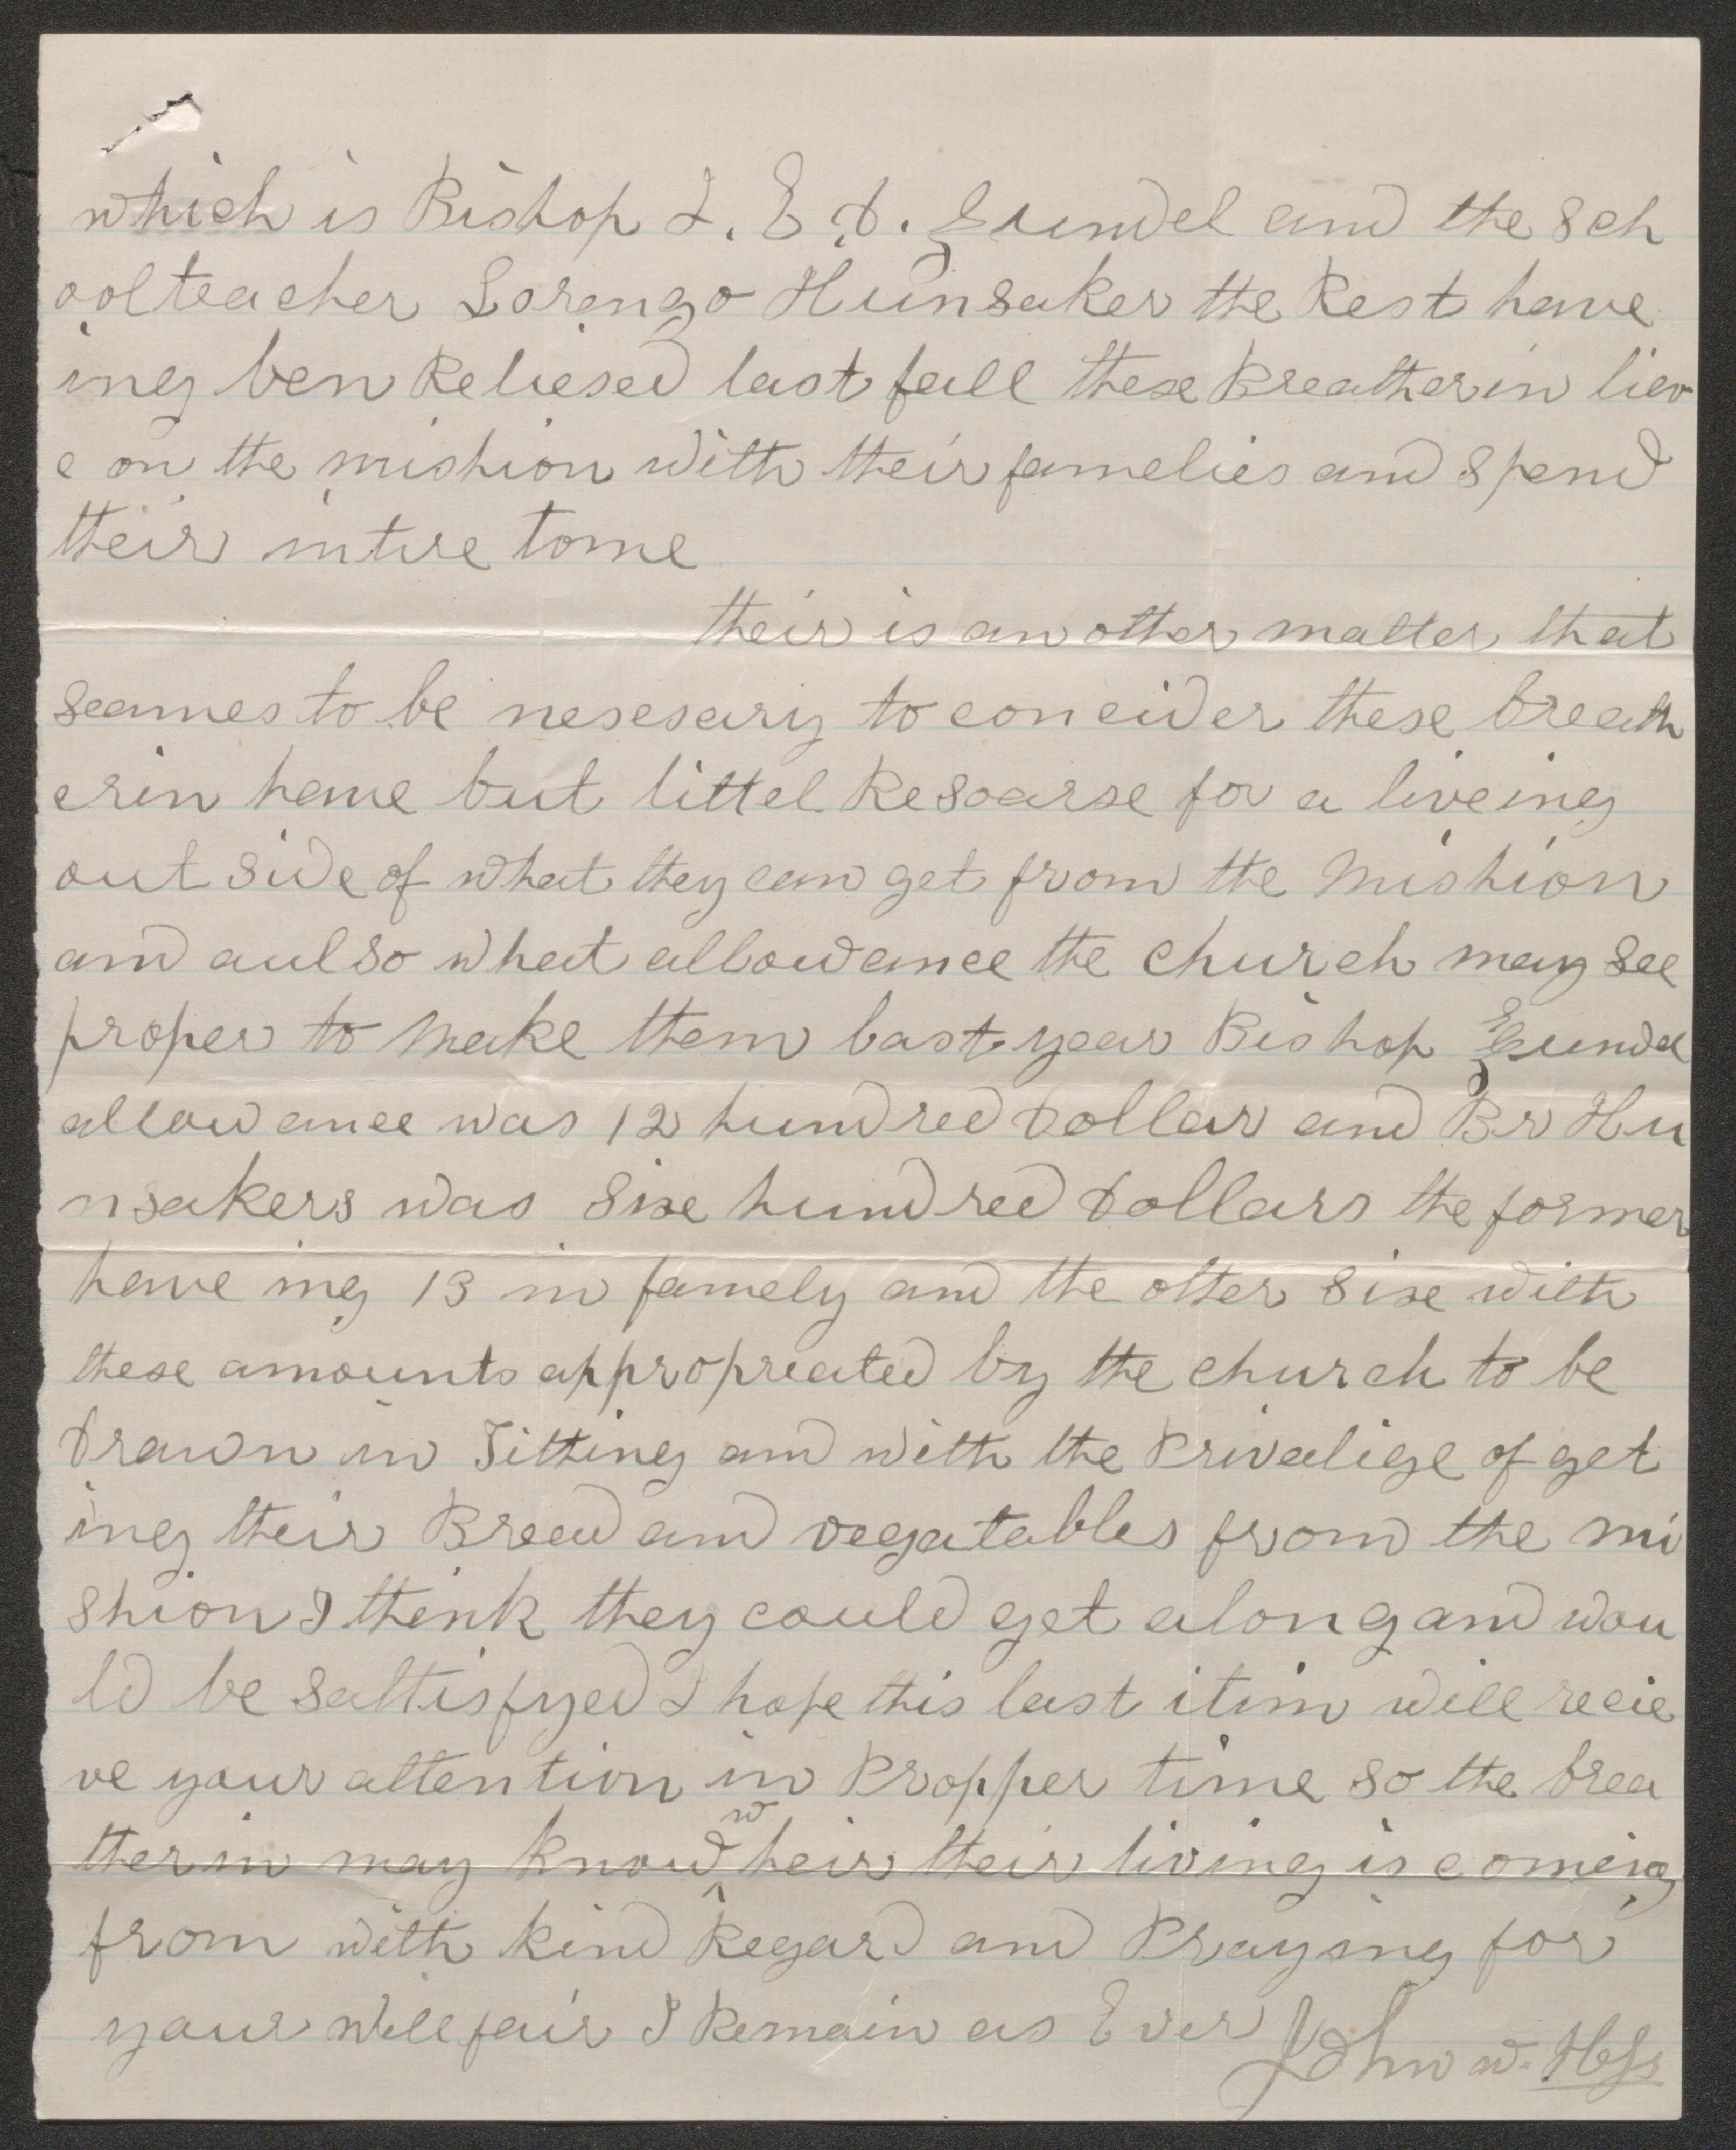 which is Bishop I. E. D. Zundel and the sch
oolteacher Lorenzo Hunsaker the Rest have
ing ben Reliesed last fall these Breatherin liev
e on the mishion with their famelies and spend
their intire tome
their is another matter that
seames to be nesesary to coneider these breath
erin have but littel Resoarse for a liveing
out side of what they can get from the Mishion
and aulso what allowance the church may see
proper to make them last year Bishop Zundel
allowance was 12 hundred Dollar and Br Hu
nsakers was Sixe hundred Dollars the former
have ing 13 in famely and the other Sixe with
these amounts appropreated by the church to be
Drawn in Titting and with the Privaliege of get
ing their Bread and vegatables from the mi
shion I think they could get along and wou
ld be sattisfyed I hope this last itim will recie
ve your attention in Propper time so the brea
therin may know wheir their living is comeing
from with kind Regard and Praying for
your Wellfair I Remain as Ever John W. Hess